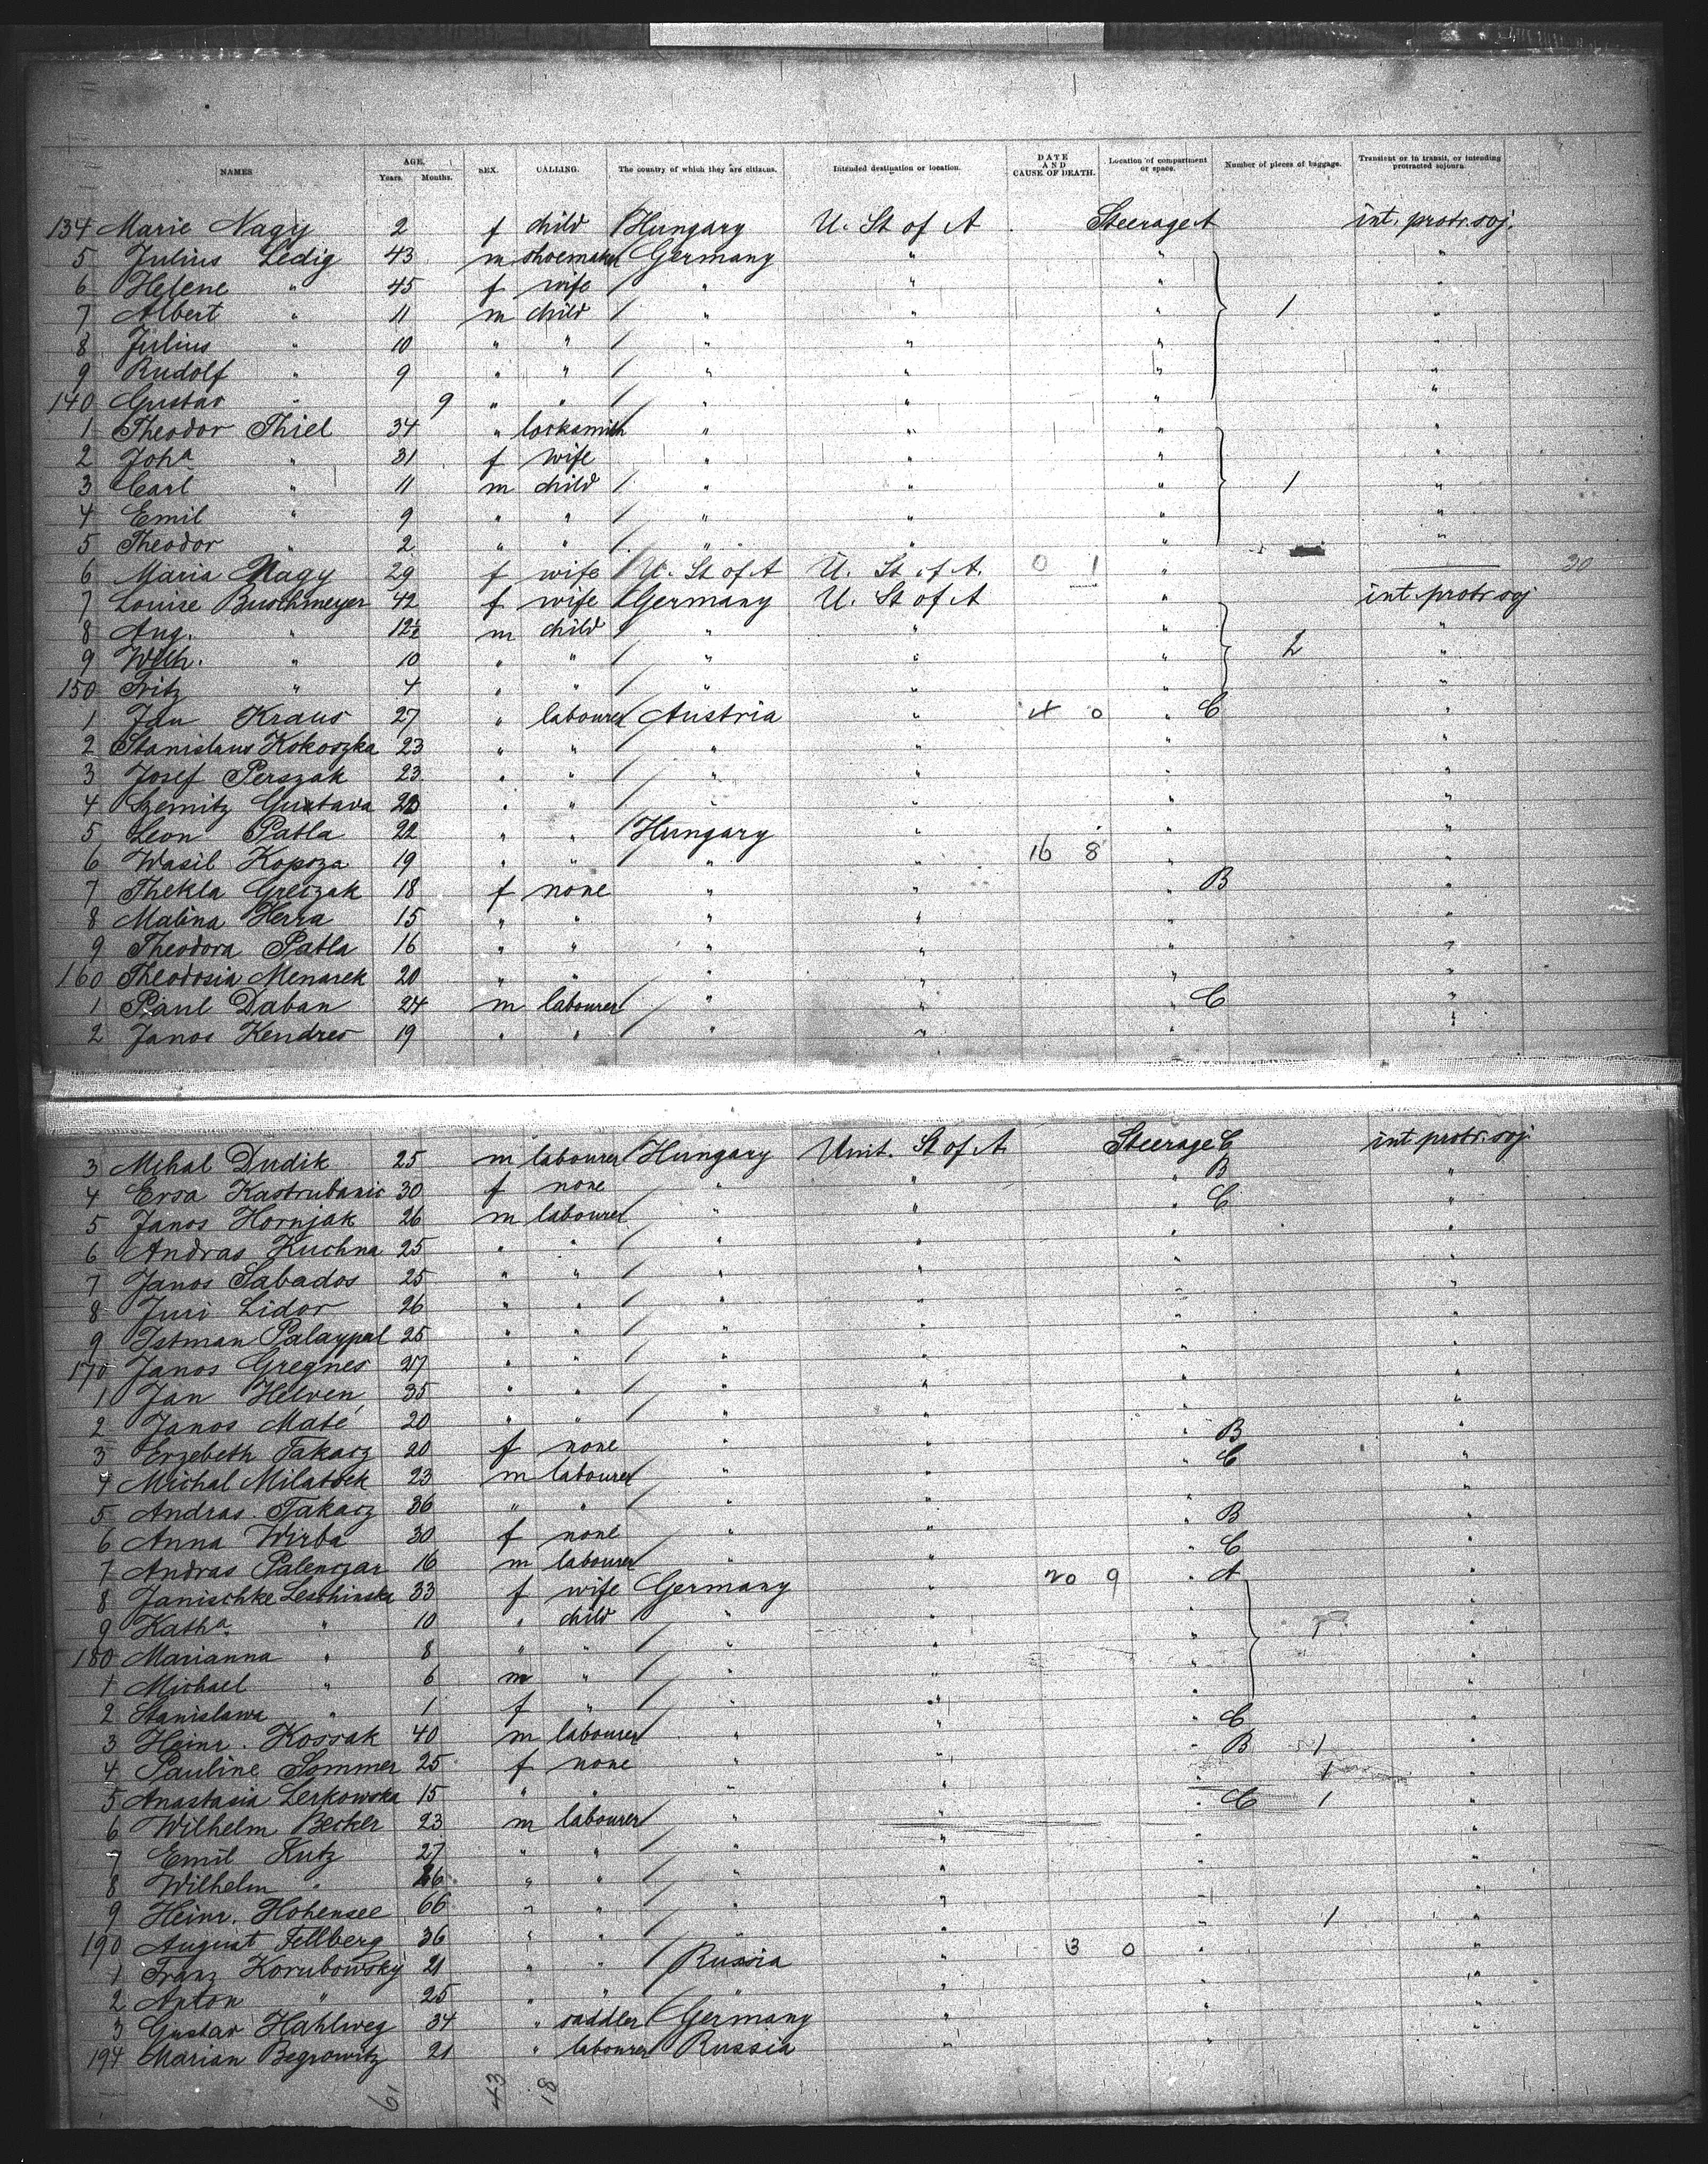 NAMES AGE. Years. Months. SEX. CALLING. The country of which they are citizens. Intended destination or location. DATE AND CAUSE OF DEATH. Location of compartment or space. Number of pieces of baggage. Transient or in transit, or intending protracted sojourn.
134 Marie Nagy 2 f child Hungary U. St of A Steerage A int. protr. soj.
5 Julius Ledig 43 m shoemaker Germany " " "
6 Helene " 45 f wife " " " "
7 Albert " 11 m child " " " 1 "
8 Julius " 10 " " " " " "
9 Rudolf " 9 " " " " " "
140 Gustav " 9 " " " " " "
1 Theodor Thiel 34 " locksmith " " " "
2 Joha " 31 f wife " " " "
3 Carl " 11 m child " " " 1 "
4 Emil " 9 " " " " " "
5 Theodor " 2 " " " " " "
6 Maria Nagy 29 f wife U. St of A U. St. of A. 0 1 " 30
7 Louise Buschmeyer 42 f wife Germany U. St of A " int. protr soj
8 Aug. " 12½ m child " " " "
9 Wilh. " 10 " " " " " 2 "
150 Fritz " 4 " " " " " "
1 Jan Kraus 27 " labourer Austria " 4 0 " C "
2 Stanislaus Kokoszka 23 " " " " " "
3 Josef Perszak 23 " " " " " "
4 Szemitz Gustava 22 " " " " " "
5 Leon Patla 22 " " Hungary " " "
6 Wasil Kopoza 19 " " " " 16 8 " "
7 Thekla Greizak 18 f none " " " B "
8 Malina Herra 15 " " " " " "
9 Theodora Patla 16 " " " " " "
160 Theodosia Menarek 20 " " " " " "
1 Paul Daban 24 m labourer " " " C "
2 Janos Kendres 19 " " " " " "
3 Mihal Dudik 25 m labourer Hungary Unit. St of A. Steerage C int protr. soj.
4 Ersa Kastrubanic 30 f none " " " B "
5 Janos Hornjak 26 m labourer " " " C "
6 Andras Kuchna 25 " " " " " "
7 Janos Sabados 25 " " " " " "
8 Juri Lidor 26 " " " " " "
9 Istman Palaypal 25 " " " " " "
170 Janos Gregnes 27 " " " " " "
1 Jan Helven 35 " " " " " "
2 Janos Maté 20 " " " " " "
3 Erzebeth Takacz 20 f none " " " B "
4 Michal Milatsek 23 m labourer " " " C "
5 Andras Takacz 36 " " " " " "
6 Anna Wirba 30 f none " " " B "
7 Andras Palenczar 16 m labourer " " " C "
8 Janischke Leschinska 33 f wife Germany " 20 9 " A "
9 Katha " 10 " child " " " 1 "
180 Marianna " 8 " " " " " "
1 Michael " 6 m " " " " "
2 Stanislawa " 1 f " " " " "
3 Heinr. Kossak 40 m labourer " " " C "
4 Pauline Sommer 25 f none " " " B 1 "
5 Anastasia Lerkowska 15 " " " " " 1 "
6 Wilhelm Becker 23 m labourer " " " C 1 "
7 Emil Kutz 27 " " " " " "
8 Wilhelm " 26 " " " " " "
9 Heinr. Hohensee 66 " " " " " "
190 August Fellberg 36 " " " " " 1 "
1 Franz Korubowsky 21 " " Russia " 3 0 " "
2 Anton " 25 " " " " " "
3 Gustav Hahlweg 34 " saddler Germany " " "
194 Marian Begrowitz 21 " labourer Russia " " "
61 43 18